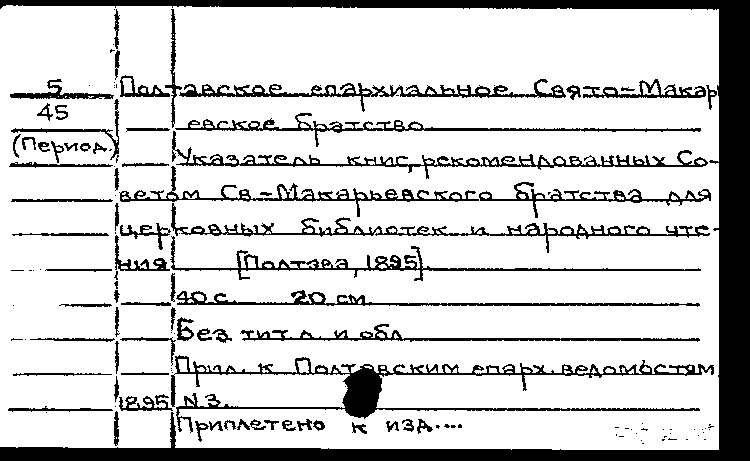 5 Полтавское епархиальное Свято-Макарь
45 евское братство
(Период.) Указатель книг, рекомендованных Со-
ветом Св.-Макарьевского братства для
церковных библиотек и народного чте-
ния [Полтава, 1895].
40 с. 20 см.
Без тит. л. и обл.
Прил. к Полтавским епарх. ведомостям
1895 N 3.
Приплетено к изд....